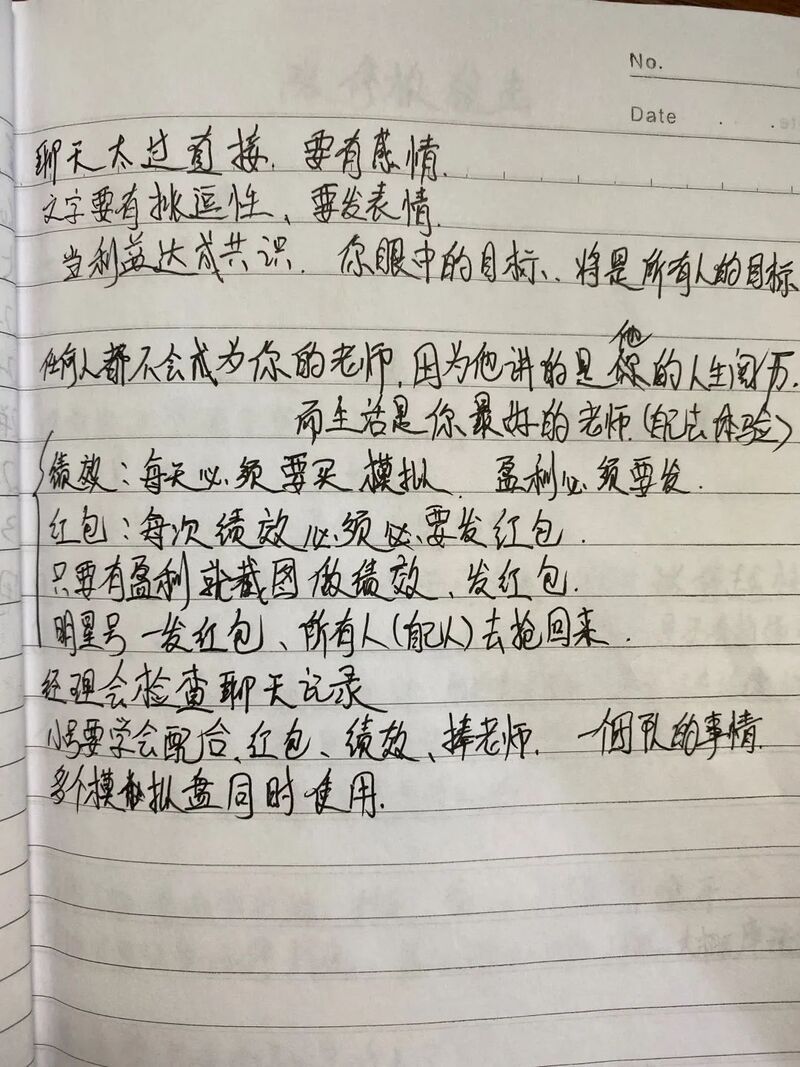 No.
Date . .
聊天太过直接、要有感情.
文字要有挑逗性、要发表情.
当利益达成共识. 你眼中的目标、将是所有人的目标
他
任何人都不会成为你的老师,因为他讲的是 的人生阅历.
而生活是你最好的老师.(自己去体验)
绩效:每天必须要买模拟. 盈利必须要发.
红包:每次绩效必须必要发红包.
只要有盈利就截图做绩效、发红包.
明星号一发红包、所有人(自己人)去抢回来.
经理会检查聊天记录
小号要学会配合、红包、绩效、捧老师. 一个团队的事情.
多个模拟盘同时使用.